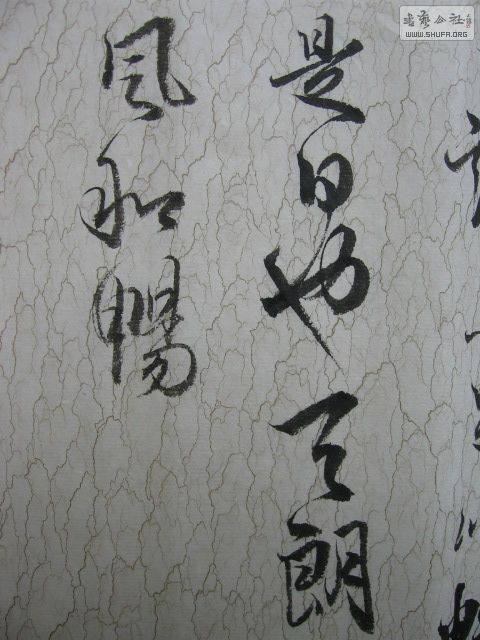 是日也天朗
風和暢
书艺公社
WWW.SHUFA.ORG